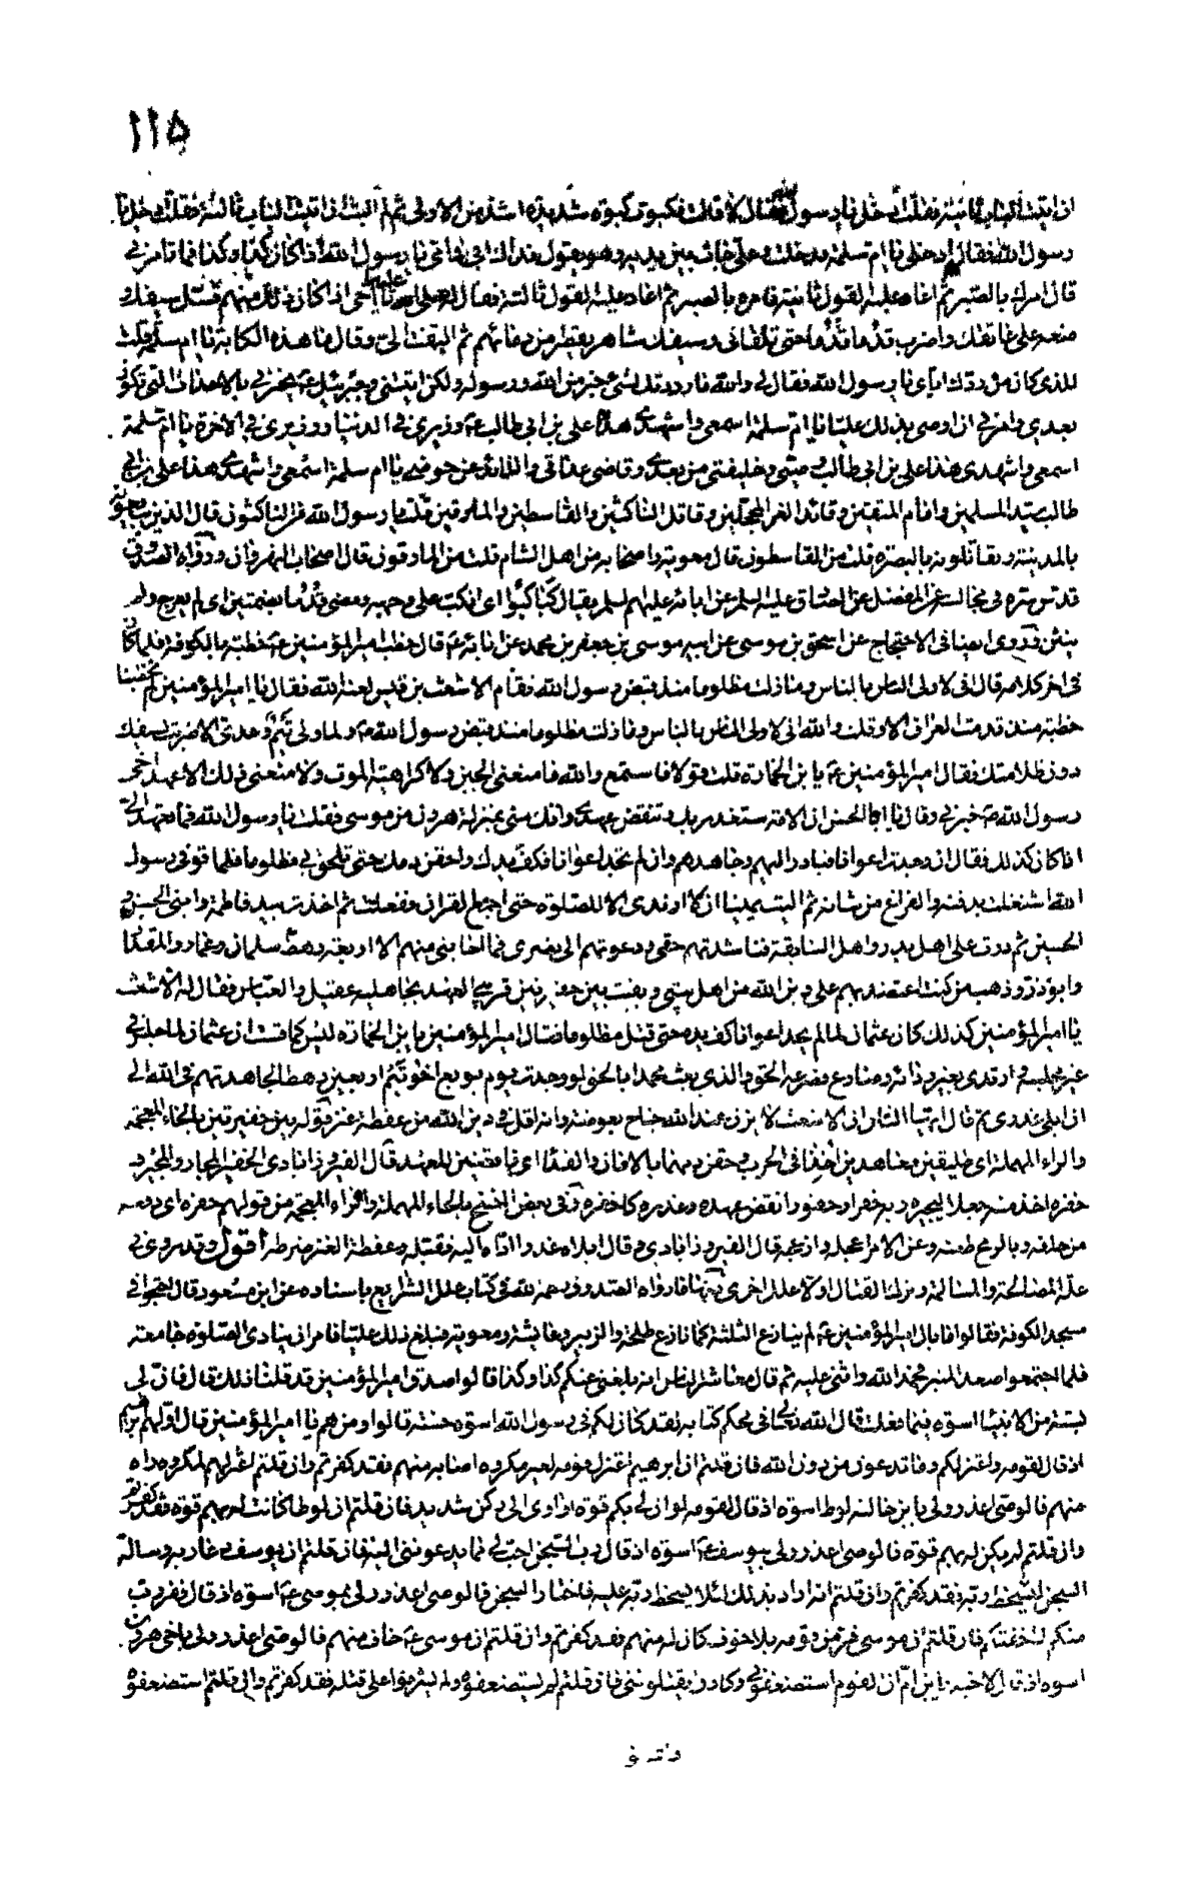 ١١٥
ان اتيت الباب ثانية فقلت أدخل يا رسول الله فقال لا قالت فكبوت كبوة شديدة اشد من الاولى ثم لم البث ان اتيت الباب ثالثة فقلت أدخل يا
رسول الله فقال ادخلي يا ام سلمة فدخلت وعلي جاث بين يديه وهو يقول فداك ابي وامي يا رسول الله اذا كان كذا وكذا فما تامرني
قال امرك بالصبر ثم اعاد عليه القول ثانية فامره بالصبر ثم اعاد عليه القول ثالثة فقال له يا علي يا اخي اذا كان ذلك منهم فسل سيفك و
ضعه على عاتقك واضرب قدما قدما حتى تلقاني وسيفك شاهر يقطر من دمائهم ثم التفت الي وقال ما هذه الكابة يا ام سلمة قلت
للذي كان من ردك اياي يا رسول الله فقال لي والله ما رددتك لشئ خبر من الله ورسوله ولكن اتيتني وجبرئيل يخبرني بالاحداث التي تكون
بعدي وامرني ان اوصي بذلك عليا يا ام سلمة اسمعي واشهدي هذا علي بن ابي طالب وزيري في الدنيا ووزيري في الاخرة يا ام سلمة
اسمعي واشهدي هذا علي بن ابي طالب وصيي وخليفتي من بعدي وقاضي عداتي والذائد عن حوضي يا ام سلمة اسمعي واشهدي هذا علي بن ابي
طالب سيد المسلمين وامام المتقين وقائد الغر المحجلين وقاتل الناكثين والقاسطين والمارقين قلت يا رسول الله من الناكثون قال الذين يبايعونه
بالمدينة ويقاتلونه بالبصرة قلت من القاسطون قال معوية واصحابه من اهل الشام قلت من المارقون قال اصحاب النهروان ورواه الصدوق
قدس سره في مجالسه عن المفضل عن الصادق عليه السلم عن ابائه عليهم السلم يقال كبا كبوا اي انكب على وجهه ومضى قدما بضمتين اي لم يعرج ولم
ينثن وروى ايضا في الاحتجاج عن اسحق بن موسى عن ابيه موسى بن جعفر بن محمد عن ابائه قال خطب امير المؤمنين خطبة بالكوفة فلما كان
في اخر كلامه قال اني لاولى الناس بالناس وما زلت مظلوما منذ قبض رسول الله فقام الاشعث بن قيس لعنه الله فقال يا امير المؤمنين لم تخطبنا
خطبة منذ قدمت العراق الا وقلت والله اني لاولى الناس بالناس وما زلت مظلوما منذ قبض رسول الله ولما ولي تيم وعدي الا ضربت بسيفك
دون ظلامتك فقال امير المؤمنين يا بن الخمارة قلت قولا فاستمع والله ما منعني الجبن ولا كراهية الموت ولا منعني ذلك الا عهد اخي
رسول الله خبرني وقال يا ابا الحسن ان الامة ستغدر بك وتنقض عهدي وانك مني بمنزلة هرون من موسى فقلت يا رسول الله فما تعهد الي
اذا كان كذلك فقال ان وجدت اعوانا فبادر اليهم وجاهدهم وان لم تجد اعوانا فكف يدك واحقن دمك حتى تلحق بي مظلوما فلما توفي رسول
الله اشتغلت بدفنه والفراغ من شانه ثم اليت يمينا ان لا ارتدي الا للصلوة حتى اجمع القران ففعلت ثم اخذت بيد فاطمة وابني الحسن و
الحسين ثم درت على اهل بدر واهل السابقة فناشدتهم حقي ودعوتهم الى نصرتي فما اجابني منهم الا اربعة رهط سلمان وعمار والمقداد
وابو ذر وذهب من كنت اعتضد بهم على دين الله من اهل بيتي وبقيت بين خفيرتين قريبي العهد بجاهلية عقيل والعباس فقال له الاشعث
يا امير المؤمنين كذلك كان عثمان لما لم يجد اعوانا كف يده حتى قتل مظلوما فقال امير المؤمنين يا بن الخمارة ليس كما قست ان عثمان لما جلس في
غير مجلسه وارتدى بغير ردائه وصارع فصرعه الحق والذي بعث محمدا بالحق لو وجدت يوم بويع اخو تيم اربعين رهطا لجاهدتهم في الله الى
ان ابلي عذري ثم قال ايها الناس ان الاشعث لا يزن عند الله جناح بعوضة وانه اقل في دين الله من عفطة عنز قوله بين خفيرتين بالخاء المعجمة
والراء المهملة اي طليقين معاهدين اخذا في الحرب وحقن دمهما بالامان والفداء اي ناقضين للعهد قال الفيروزابادي الخفير المجار والمجير و
خفره اخذ منه جعلا ليجيره وبه خفرا وخفورا نقض عهده وغدره كاخفره وفي بعض النسخ بالحاء المهملة والزاء المعجمة من قولهم حفزه اي دفعه
من خلفه وبالرمح طعنه وعن الامر اعجله وازعجه قال الفيروزابادي وقال ابلاه عذرا اداه اليه فقبله وعفطة العنز ضرطها اقول وقد روي في
علة المصالحة والمسالمة وترك القتال اولا علل اخرى منها ما رواه الصدوق رحمه الله في كتاب علل الشرايع باسناده عن ابن مسعود قال احتجوا في
مسجد الكوفة فقالوا ما بال امير المؤمنين لم ينازع الثلثة كما نازع طلحة والزبير وعايشة ومعوية فبلغ ذلك عليا فامر ان ينادى الصلوة جامعة
فلما اجتمعوا صعد المنبر فحمد الله واثنى عليه ثم قال معاشر الناس انه بلغني عنكم كذا وكذا قالوا صدق امير المؤمنين قد قلنا ذلك قال فان لي
بسنة من الانبياء اسوة فيما فعلت قال الله تعالى في محكم كتابه لقد كان لكم في رسول الله اسوة حسنة قالوا ومن هم يا امير المؤمنين قال اولهم ابرهيم
اذ قال لقومه واعتزلكم وما تدعون من دون الله فان قلتم ان ابرهيم اعتزل قومه لغير مكروه اصابه منهم فقد كفرتم وان قلتم اعتزلهم لمكروه راه
منهم فالوصي اعذر ولي بابن خالته لوط اسوة اذ قال لقومه لو ان لي بكم قوة او اوي الى ركن شديد فان قلتم ان لوطا كانت له بهم قوة فقد كفرتم
وان قلتم لم يكن له بهم قوة فالوصي اعذر ولي بيوسف اسوة اذ قال رب السجن احب الي مما يدعونني اليه فان قلتم ان يوسف دعا ربه وساله
السجن لسخط ربه فقد كفرتم وان قلتم انه اراد بذلك لئلا يسخط ربه عليه فاختار السجن فالوصي اعذر ولي بموسى اسوة اذ قال ففررت
منكم لما خفتكم فان قلتم ان موسى فر من قومه بلا خوف كان له منهم فقد كفرتم وان قلتم ان موسى خاف منهم فالوصي اعذر ولي باخي هرون
اسوة اذ قال لاخيه يا بن ام ان القوم استضعفوني وكادوا يقتلونني فان قلتم لم يستضعفوه ولم يشرفوا على قتله فقد كفرتم وان قلتم استضعفوه